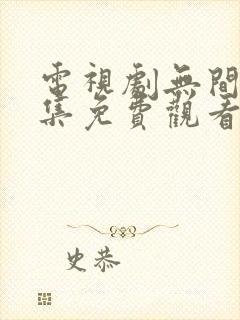 電視劇無間
集免費觀看
史恭